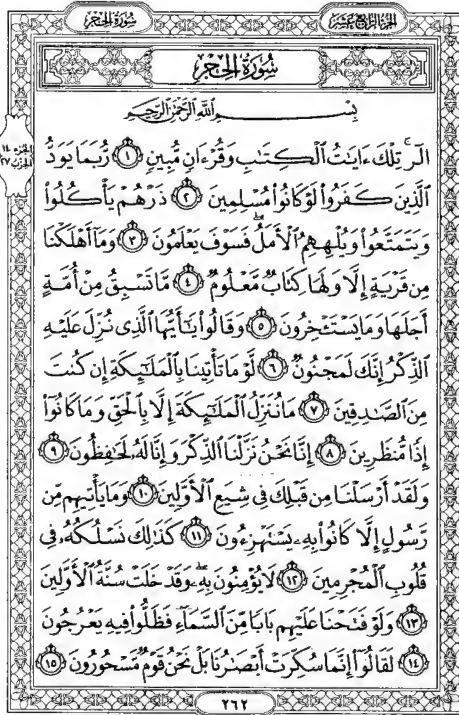 سُورَةُ الحِجْرِ
الجُزْءُ الرَّابِعَ عَشَرَ
سُورَةُ الحِجْرِ
بِسْمِ اللَّهِ الرَّحْمَٰنِ الرَّحِيمِ
الٓرۚ تِلْكَ ءَايَٰتُ ٱلْكِتَٰبِ وَقُرْءَانٍ مُّبِينٍ ١ رُّبَمَا يَوَدُّ
ٱلَّذِينَ كَفَرُوا۟ لَوْ كَانُوا۟ مُسْلِمِينَ ٢ ذَرْهُمْ يَأْكُلُوا۟
وَيَتَمَتَّعُوا۟ وَيُلْهِهِمُ ٱلْأَمَلُۖ فَسَوْفَ يَعْلَمُونَ ٣ وَمَآ أَهْلَكْنَا
مِن قَرْيَةٍ إِلَّا وَلَهَا كِتَابٌ مَّعْلُومٌ ٤ مَّا تَسْبِقُ مِنْ أُمَّةٍ
أَجَلَهَا وَمَا يَسْتَـْٔخِرُونَ ٥ وَقَالُوا۟ يَٰٓأَيُّهَا ٱلَّذِى نُزِّلَ عَلَيْهِ
ٱلذِّكْرُ إِنَّكَ لَمَجْنُونٌ ٦ لَّوْ مَا تَأْتِينَا بِٱلْمَلَٰٓئِكَةِ إِن كُنتَ
مِنَ ٱلصَّٰدِقِينَ ٧ مَا نُنَزِّلُ ٱلْمَلَٰٓئِكَةَ إِلَّا بِٱلْحَقِّ وَمَا كَانُوٓا۟
إِذًا مُّنظَرِينَ ٨ إِنَّا نَحْنُ نَزَّلْنَا ٱلذِّكْرَ وَإِنَّا لَهُۥ لَحَٰفِظُونَ ٩
وَلَقَدْ أَرْسَلْنَا مِن قَبْلِكَ فِى شِيَعِ ٱلْأَوَّلِينَ ١٠ وَمَا يَأْتِيهِم مِّن
رَّسُولٍ إِلَّا كَانُوا۟ بِهِۦ يَسْتَهْزِءُونَ ١١ كَذَٰلِكَ نَسْلُكُهُۥ فِى
قُلُوبِ ٱلْمُجْرِمِينَ ١٢ لَا يُؤْمِنُونَ بِهِۦۖ وَقَدْ خَلَتْ سُنَّةُ ٱلْأَوَّلِينَ
١٣ وَلَوْ فَتَحْنَا عَلَيْهِم بَابًا مِّنَ ٱلسَّمَآءِ فَظَلُّوا۟ فِيهِ يَعْرُجُونَ
١٤ لَقَالُوٓا۟ إِنَّمَا سُكِّرَتْ أَبْصَٰرُنَا بَلْ نَحْنُ قَوْمٌ مَّسْحُورُونَ ١٥
٢٦٢